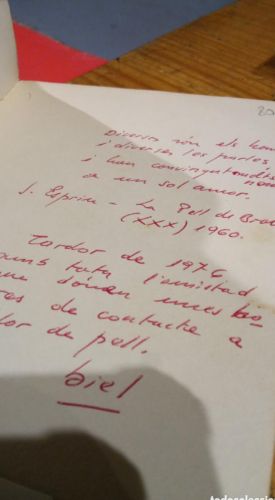 Diversos són els hom
i diverses les parles
i han convingut
nom
de un sol amor.
S. Espriu - La Pell de Brau
(XXX) 1960.
Tardor de 1976
tota l'amistat
que donen unes ho
res de contacte a
de pell.
biel
todocoleccion